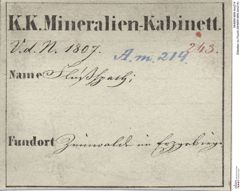 K.K. Mineralien-Kabinett.
V.d.N. 1807.
A.m. 214.
243.
Name Flußspath;
Fundort Zinnwalde im Erzgebirge